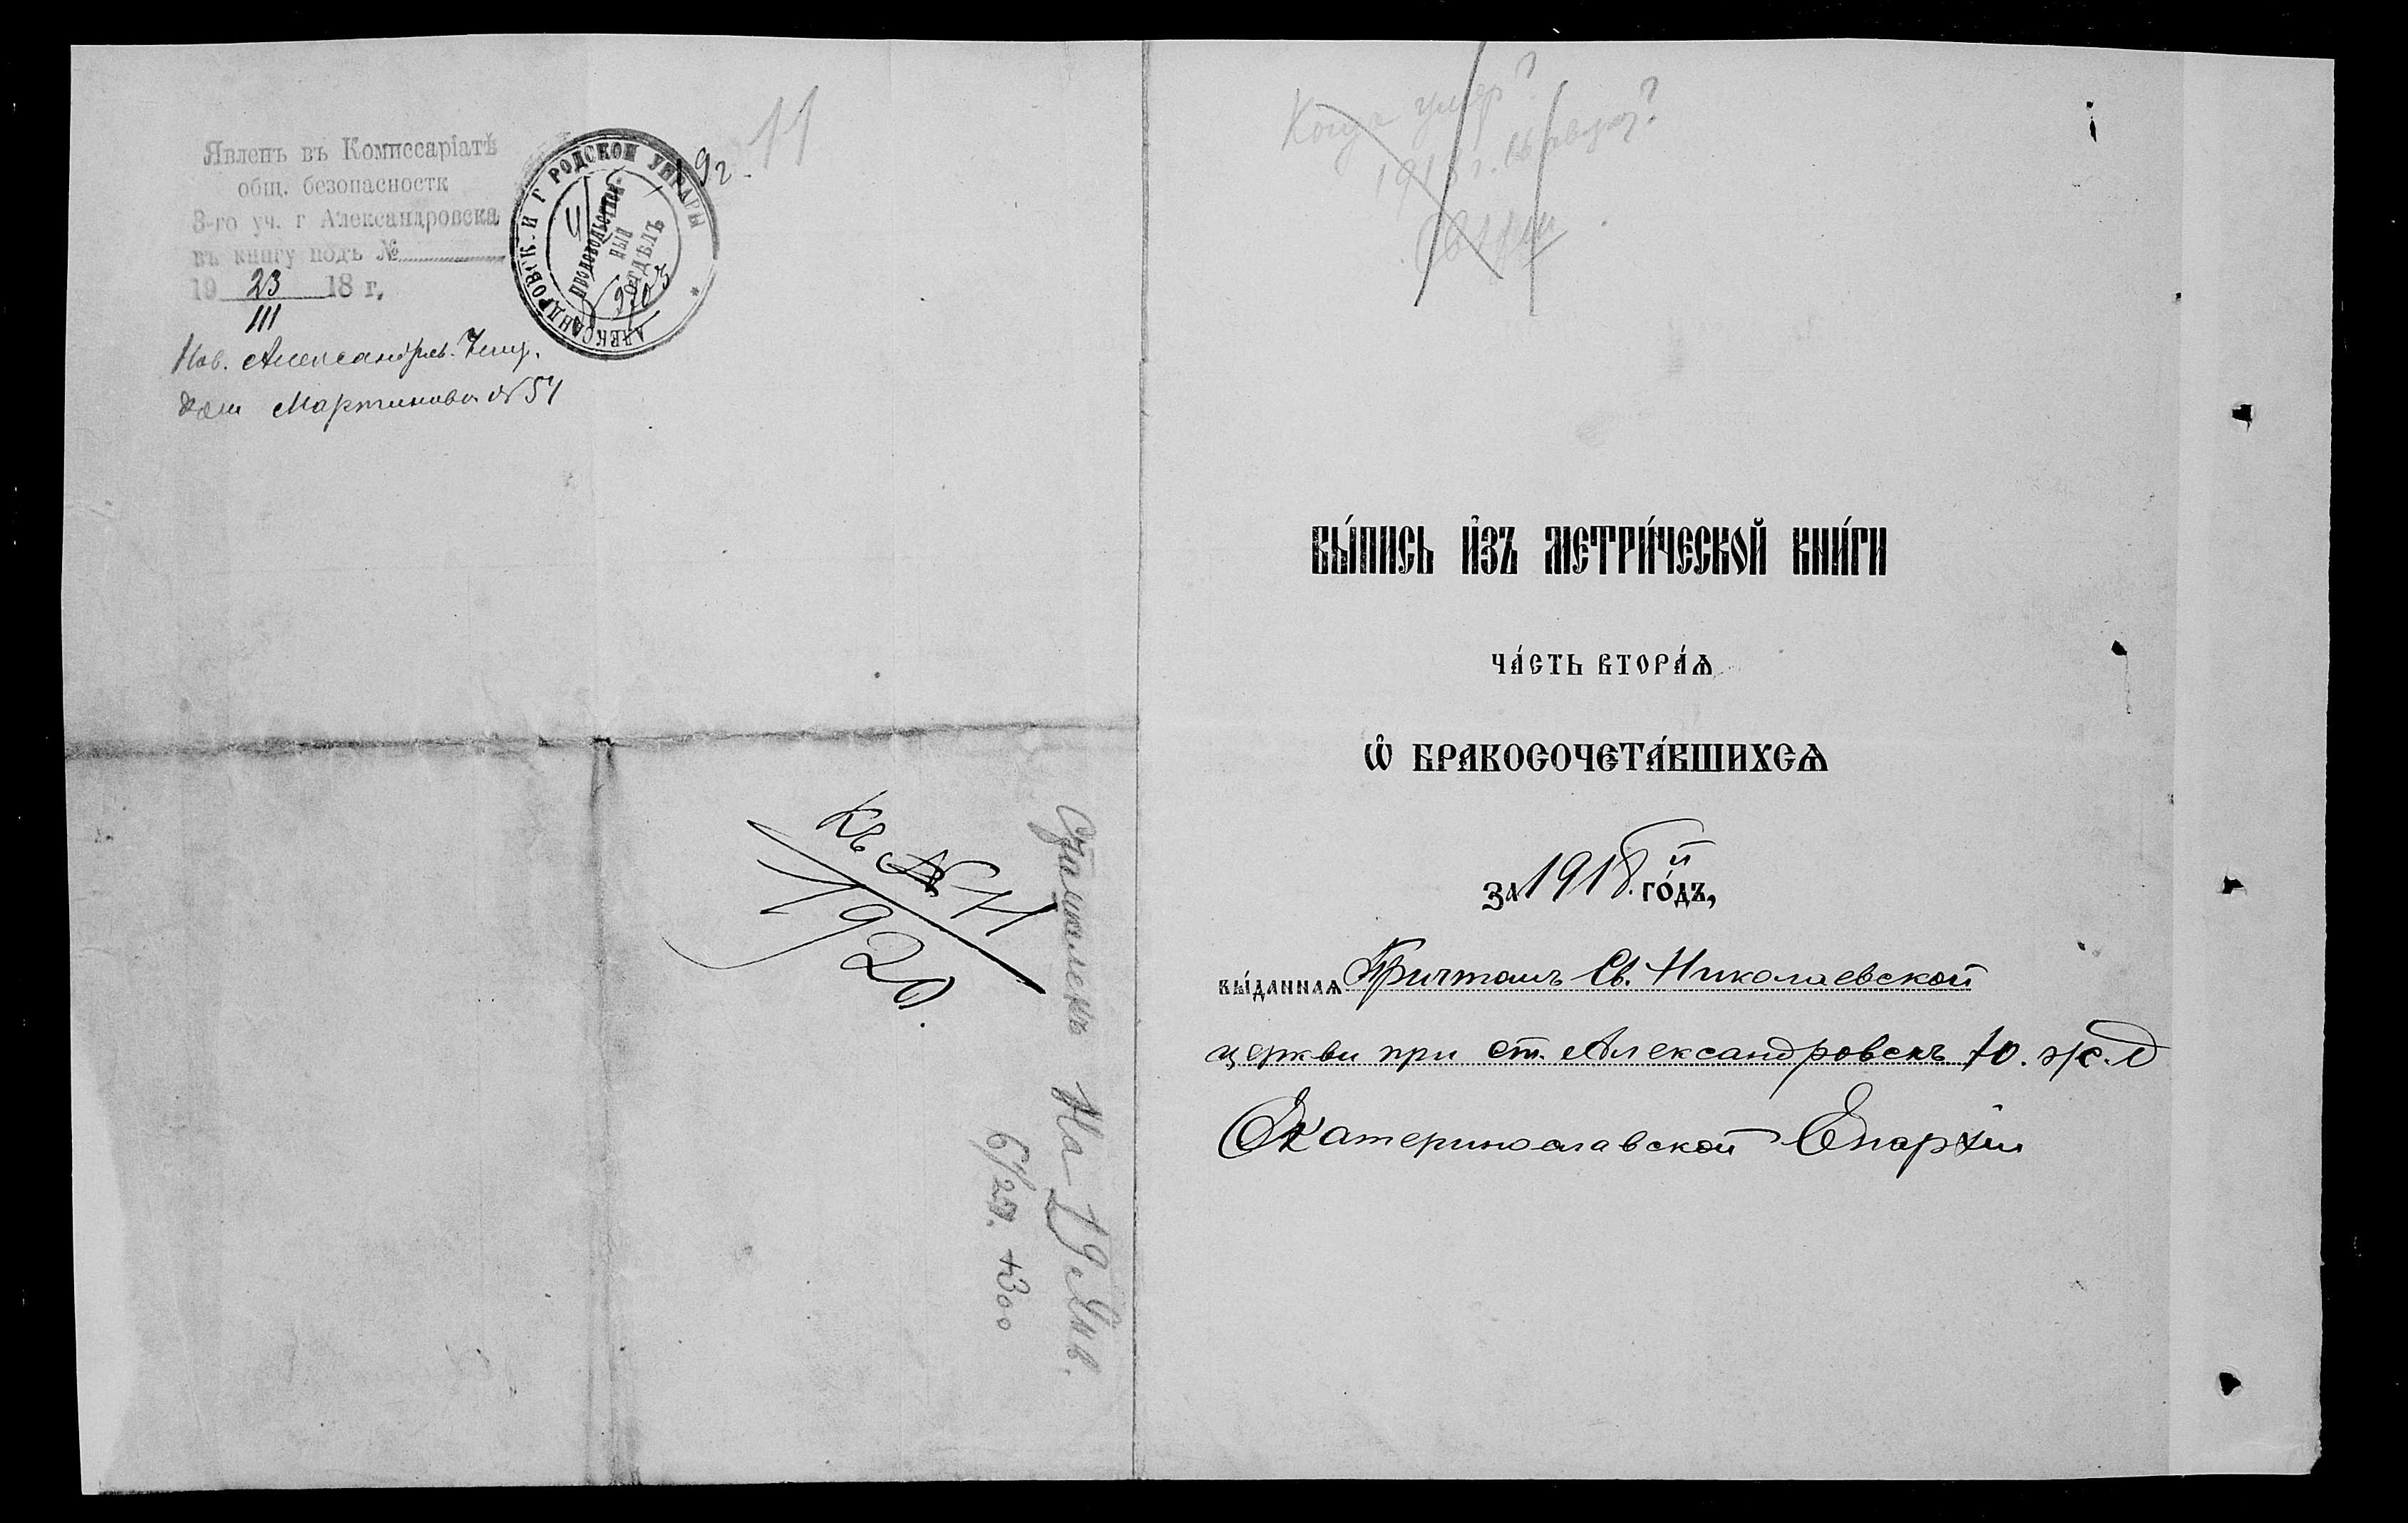 Явленъ въ Комиссаріатѣ
общ. безопасностк
3-го уч. г Александровска
въ книгу подъ №
19 23 18 г.
III
Нов. Александров.
дом Мартинова № 54
АЛЕКСАНДРОВСК. И Г РОДСКОЙ УПРАВЫ *
продовольствен-
ный
ОТДѢЛЪ
11
Къ № Н
1920.
На 19
+300
Когда умер?
1918 г.
ВЫ́ПИСЬ И҆ЗЪ МЕТРИ́ЧЕСКОЙ КНИ́ГИ
ЧА́СТЬ ВТОРА́Ѧ
Ѽ БРАКОСОЧЕТА́ВШИХСѦ
за 1918й го́дъ,
вы́даннаѧ Причтомъ Св. Николаевской
церкви при ст. Александровскъ Ю. ж. д
Екатеринославской Епархіи